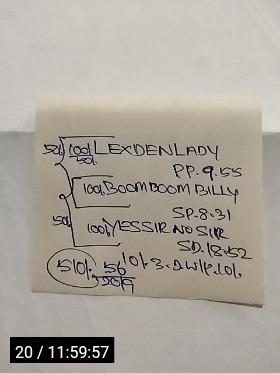 50% 100% LEXDENLADY
50%
PP.9.55
100% BOOMBOOMBILLY
SP.8.31
50% 100% YESSIR NO SIR
SD.18.52
510%. 56 10%.3.DW1P.10%
2019
20 / 11:59:57